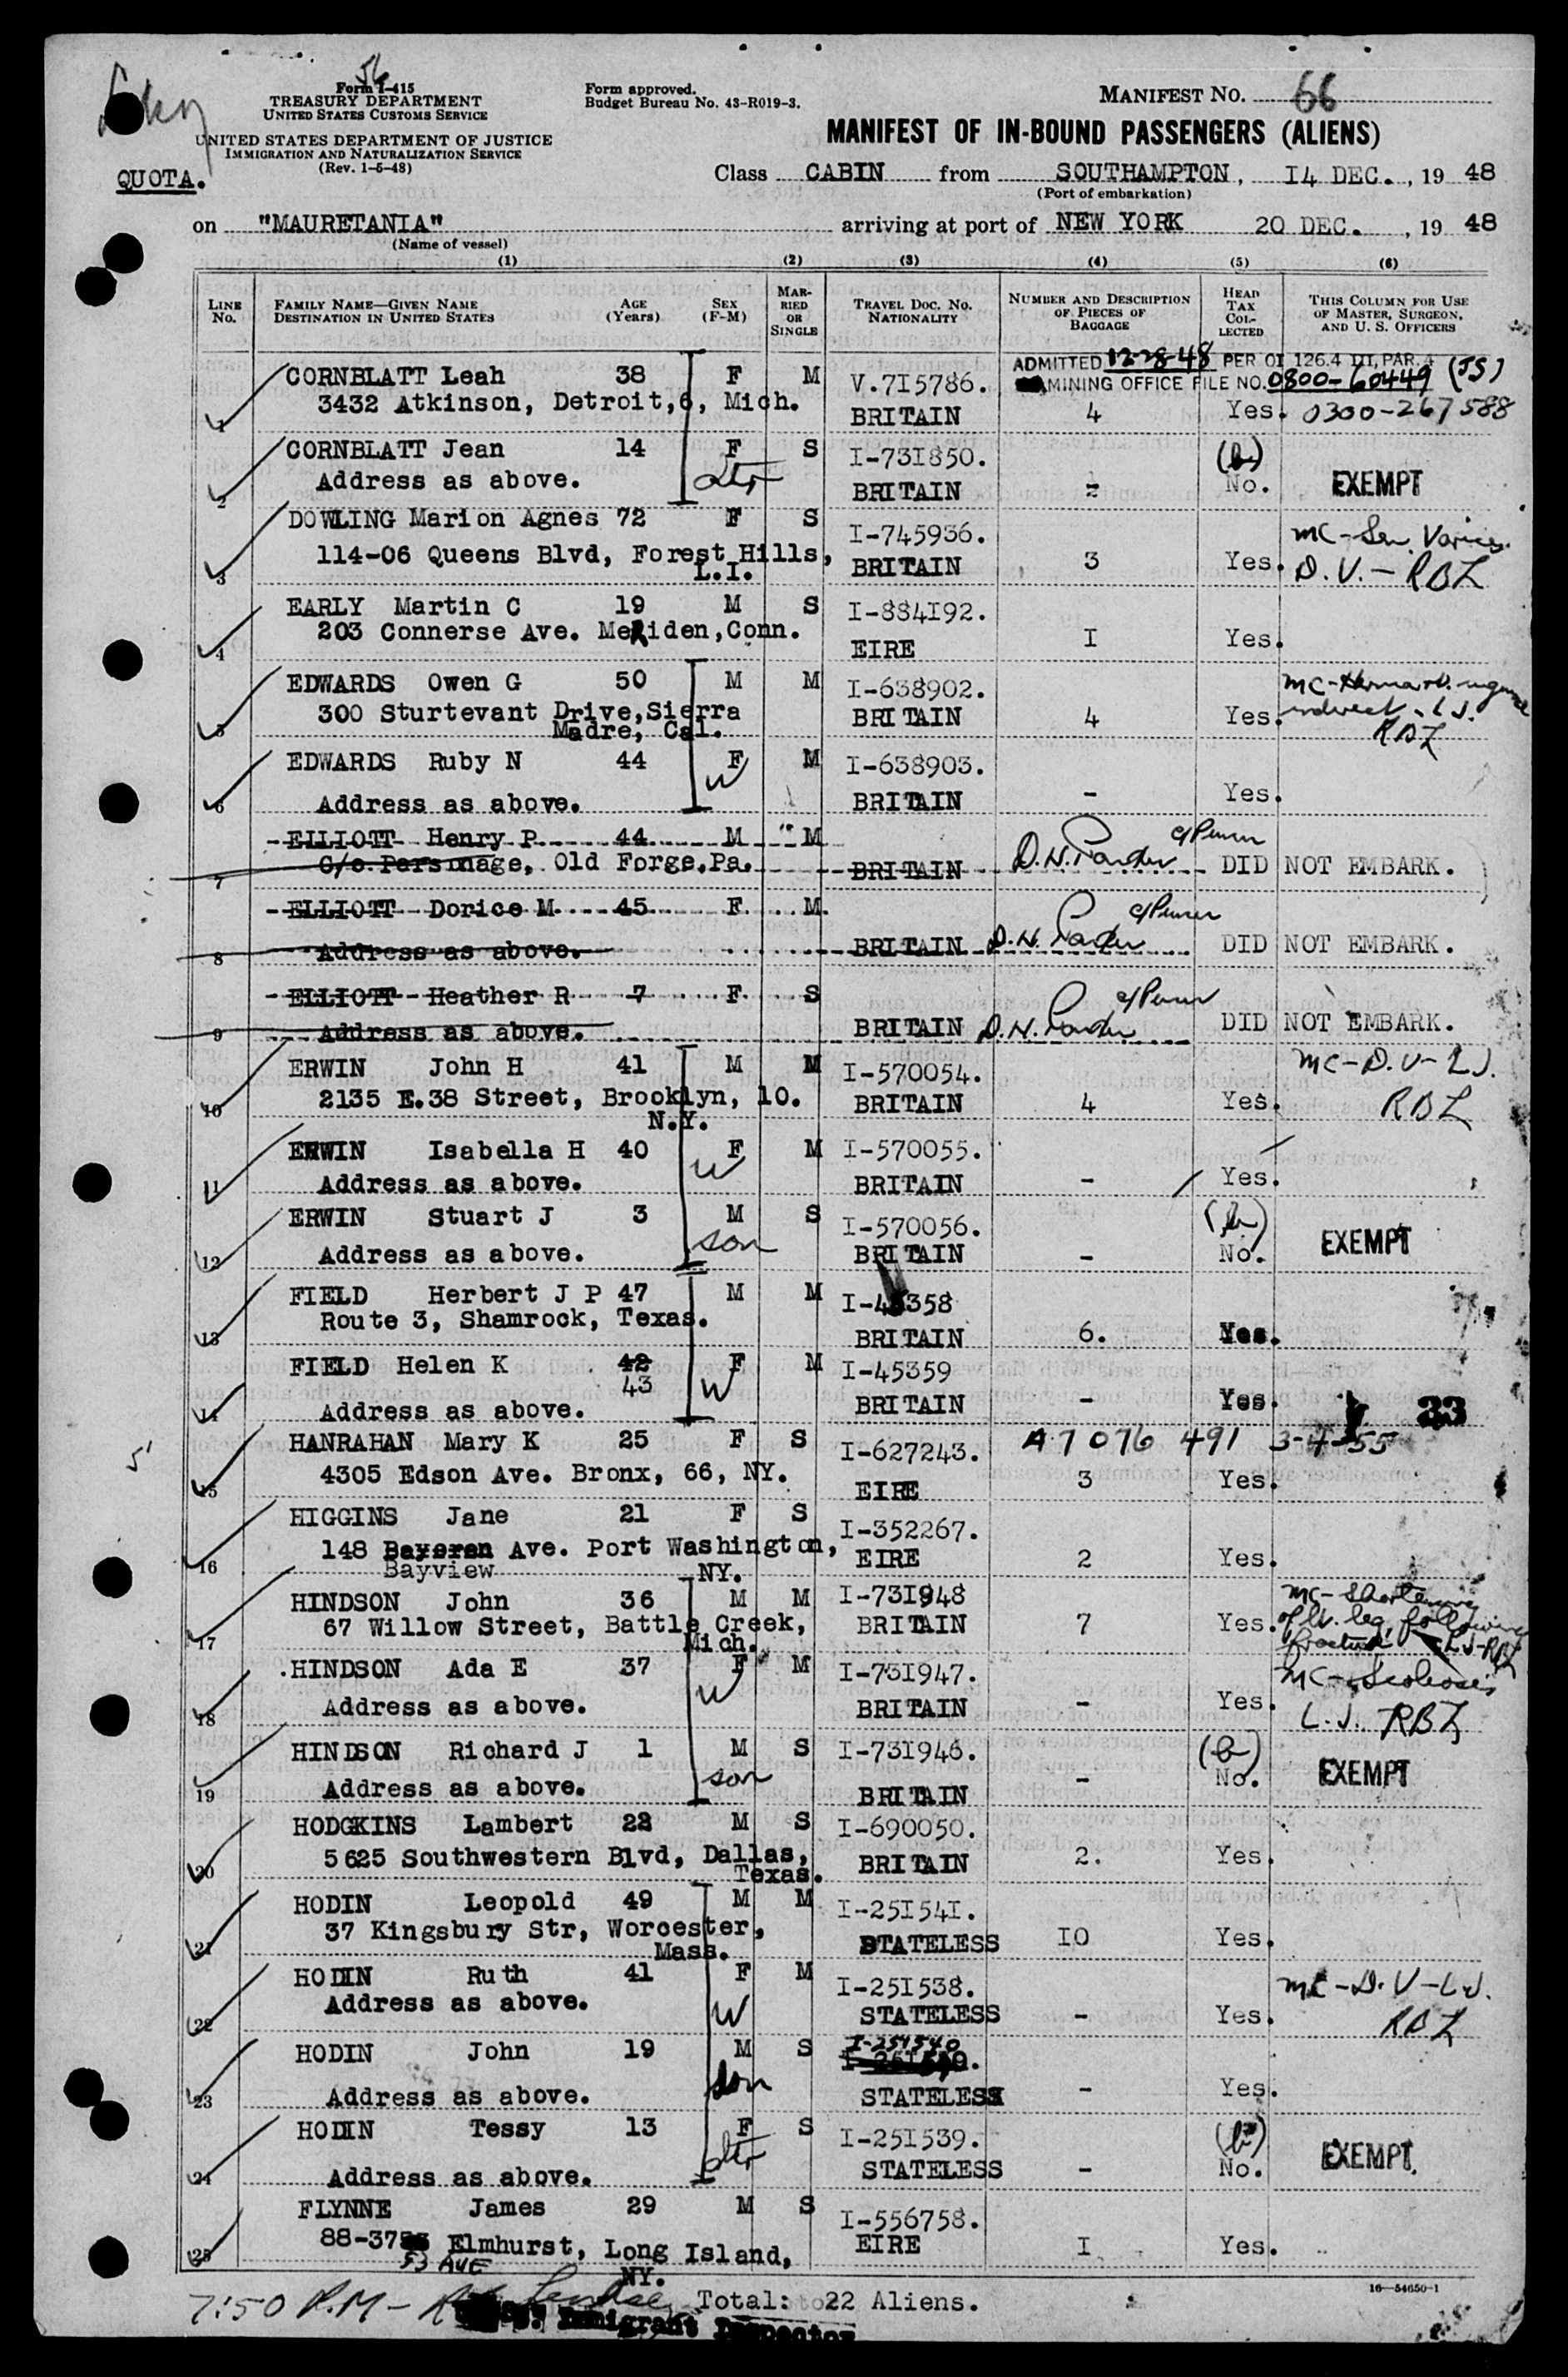 56
Form I-415
TREASURY DEPARTMENT
UNITED STATES CUSTOMS SERVICE
UNITED STATES DEPARTMENT OF JUSTICE
IMMIGRATION AND NATURALIZATION SERVICE
(Rev. 1-5-48)
QUOTA.
Form approved.
Budget Bureau No. 43-R019-3.
MANIFEST NO. 66
MANIFEST OF IN-BOUND PASSENGERS (ALIENS)
Class CABIN from SOUTHAMPTON, 14 DEC., 19 48
(Port of embarkation)
on "MAURETANIA" arriving at port of NEW YORK 20 DEC., 19 48
(Name of vessel)
(1) (2) (3) (4) (5) (6)
LINE NO. FAMILY NAME—GIVEN NAME DESTINATION IN UNITED STATES AGE (Years) SEX (F-M) MARRIED OR SINGLE TRAVEL DOC. NO. NATIONALITY NUMBER AND DESCRIPTION OF PIECES OF BAGGAGE HEAD TAX COLLECTED THIS COLUMN FOR USE OF MASTER, SURGEON, AND U. S. OFFICERS
ADMITTED 12-28-48 PER OI 126.4 III, PAR. 4
EXAMINING OFFICE FILE NO. 0800-60449 (JS)
CORNBLATT Leah 38 F M V.715786.
1 3432 Atkinson, Detroit,6, Mich. BRITAIN 4 Yes. 0300-267588
CORNBLATT Jean 14 F S I-731850. (b)
2 Address as above. dtr BRITAIN - No. EXEMPT
DOWLING Marion Agnes 72 F S I-745936. MC-Sen. Varices.
3 114-06 Queens Blvd, Forest Hills, L.I. BRITAIN 3 Yes. D.V.-RBL
EARLY Martin C 19 M S I-884192.
4 203 Connerse Ave. MeRiden,Conn. EIRE I Yes.
EDWARDS Owen G 50 M M I-638902. MC-
5 300 Sturtevant Drive,Sierra Madre, Cal. BRITAIN 4 Yes. indirect. L.J. RBL
EDWARDS Ruby N 44 F M I-638903.
6 Address as above. W BRITAIN - Yes.
ELLIOTT Henry P 44 M M
7 C/o.Parsonage, Old Forge,Pa. BRITAIN DID NOT EMBARK.
ELLIOTT Dorice M 45 F M
8 Address as above. BRITAIN DID NOT EMBARK.
ELLIOTT Heather R 7 F S
9 Address as above. BRITAIN DID NOT EMBARK.
ERWIN John H 41 M M I-570054. MC-D.V-L.J.
10 2135 E.38 Street, Brooklyn, 10. N.Y. BRITAIN 4 Yes. RBL
ERWIN Isabella H 40 F M I-570055.
11 Address as above. W BRITAIN - Yes.
ERWIN Stuart J 3 M S I-570056. (b)
12 Address as above. son BRITAIN - No. EXEMPT
FIELD Herbert J P 47 M M I-45358
13 Route 3, Shamrock, Texas. BRITAIN 6. Yes.
FIELD Helen K 42 43 F M I-45359
14 Address as above. W BRITAIN - Yes. 33
HANRAHAN Mary K 25 F S I-627243. A7 076 491 3-4-55
15 4305 Edson Ave. Bronx, 66, NY. EIRE 3 Yes.
HIGGINS Jane 21 F S I-352267.
16 148 Ave. Port Washington, EIRE 2 Yes.
Bayview NY.
HINDSON John 36 M M I-731948 MC-Shortening
17 67 Willow Street, Battle Creek, Mich. BRITAIN 7 Yes. of lt. leg, following fracture L.J-RBL
HINDSON Ada E 37 F M I-731947. MC-Scoliosis
18 Address as above. W BRITAIN - Yes. L.J. RBL
HINDSON Richard J 1 M S I-731946. (b)
19 Address as above. son BRITAIN - No. EXEMPT
HODGKINS Lambert 22 M S I-690050.
20 5625 Southwestern Blvd, Dallas, Texas. BRITAIN 2. Yes.
HODIN Leopold 49 M M I-251541.
21 37 Kingsbury Str, Worcester, Mass. STATELESS 10 Yes.
HODIN Ruth 41 F M I-251538. MC-D.V-L.J.
22 Address as above. W STATELESS - Yes. RBL
HODIN John 19 M S I-251540
23 Address as above. son STATELESS - Yes.
HODIN Tessy 13 F S I-251539. (b)
24 Address as above. dtr STATELESS - No. EXEMPT
FLYNNE James 29 M S I-556758.
25 88-37 Elmhurst, Long Island, NY. EIRE I Yes.
53 AVE
7:50 P.M- Total: 22 Aliens.
Immigrant Inspector
16—54650-1